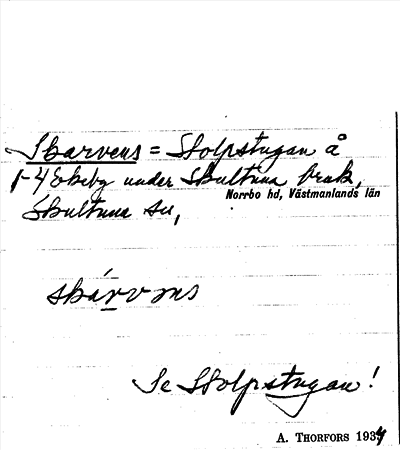 Skarvens = Stolpstugan å
1-4 Ekeby under Skultuna bruk,
Norrbo hd, Västmanlands län
Skultuna sn,
skárvens
Se Stolpstugan!
A. THORFORS 1934